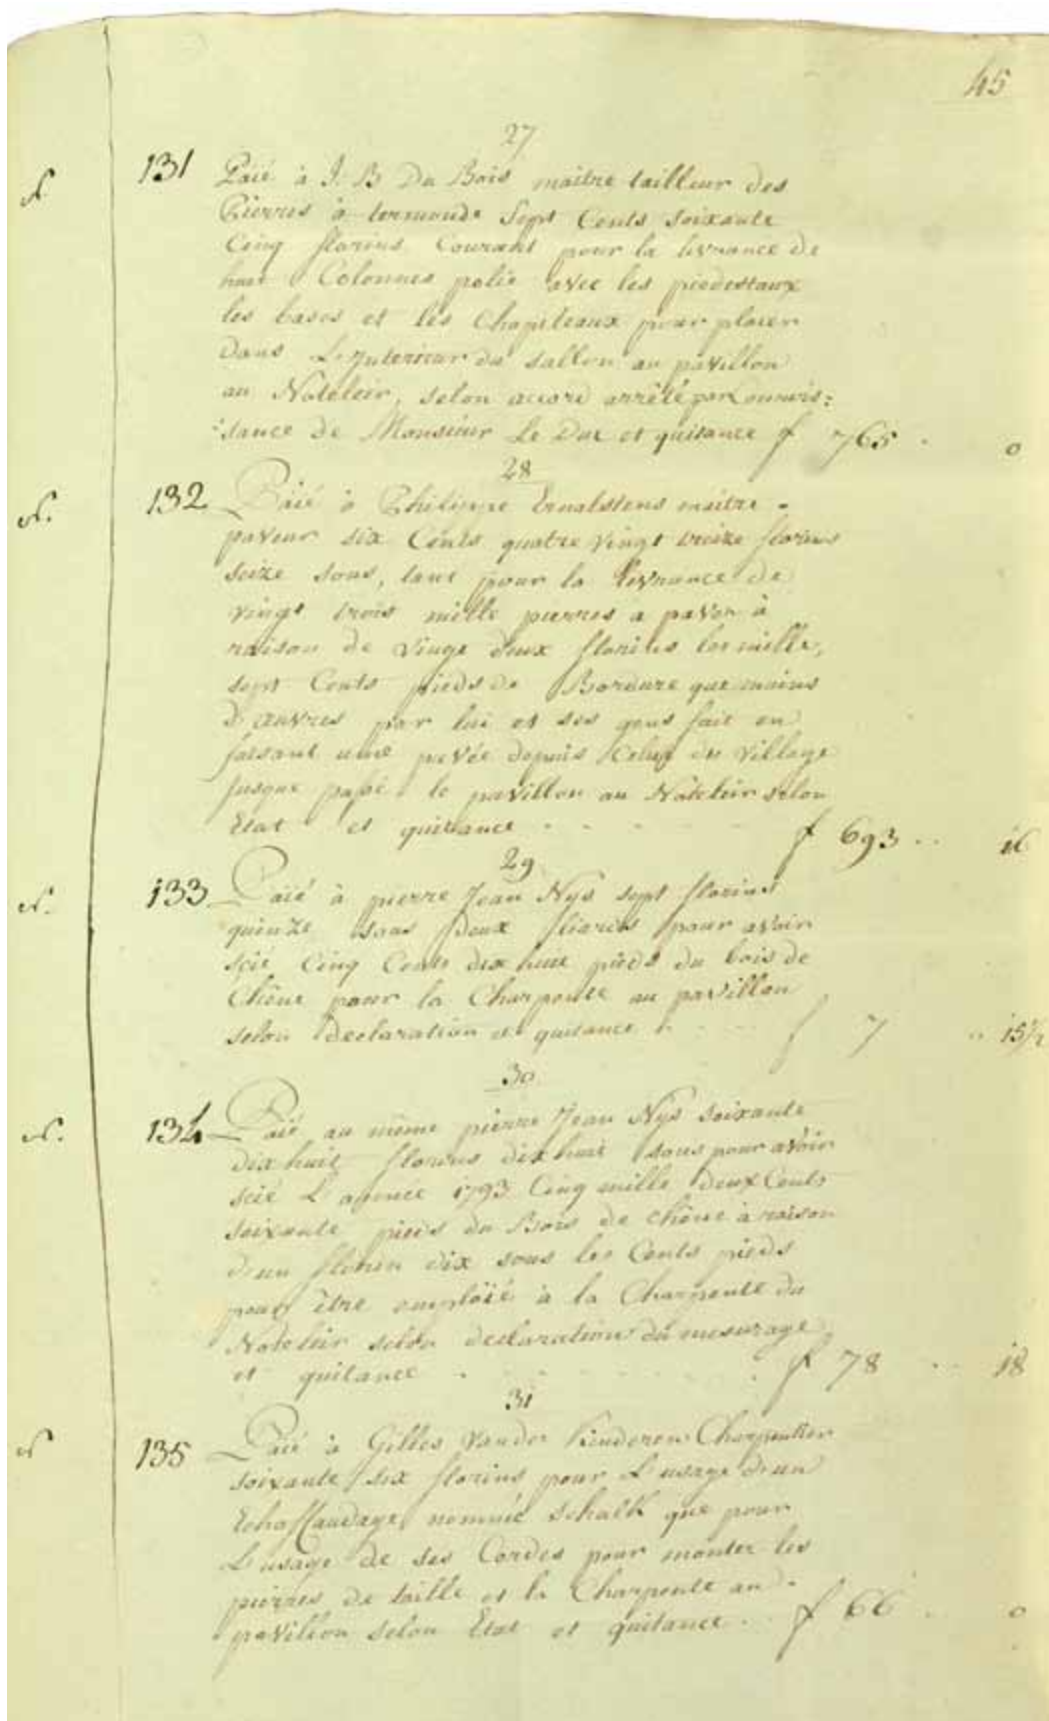 45
27
131 Paié à J. B Du Bois maitre tailleur des
Pierres à termonde Sept Cents soixante
Cinq florins Courant pour la livrance de
huit Colonnes polie avec les piedestaux
les bases et les Chapiteaux pour placer
Dans L'Interieur du sallon au pavillon
au Noteleir, selon accord arrêté par Connois:
:sance de Monsieur Le Duc et quitance f 765 . 0
28
132 Paié à Philippe Ernalsteens maitre
paveur six Cents quatre vingt treize florins
seize sous, tant pour la livrance de
vingt trois mille pierres a paver à
raison de vingt deux florins les mille,
sept Cents pieds de Bordure que mains
D'œuvres par lui et ses gens fait en
faisant une pavée depuis Celui du Village
jusque passé le pavillon au Noteleir selon
Etat et quitance . . . . f 693 .. 16
29
133 Paié à pierre Jean Nijs sept florins
quinze sous Deux fliards pour avoir
scié Cinq Cents dix huit pieds du bois de
Chêne pour la Charpente au pavillon
selon Declaration et quitance . . f 7 .. 15 1/2
30
134 Paié au même pierre Jean Nijs soixante
dix huit florins dix huit sous pour avoir
scié L'année 1793 Cinq mille Deux Cents
soixante pieds du Bois de chêne à raison
d'un florin dix sous les Cents pieds
pour être emploïé à la Charpente du
Noteleir selon declaration du mesurage
et quitance . . . . f 78 .. 18
31
135 Paié à Gilles Vander Kinderen Charpentier
soixante six florins pour L'usage d'un
Echaffaudage nommée schalk que pour
L'usage de ses Cordes pour monter les
pierres de taille et la Charpente au
pavillion selon Etat et quitance . . f 66 . 0